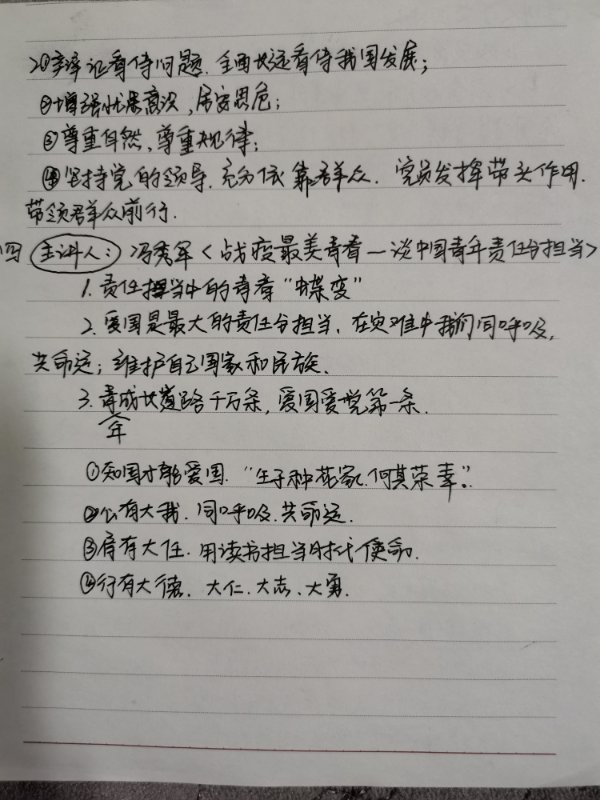 2.①辩证看待问题.全面长远看待我国发展;
②增强忧患意识,居安思危;
③尊重自然,尊重规律;
④坚持党的领导.充分依靠群众.党员发挥带头作用.
带领群众前行.
四 主讲人: 冯秀军<战疫最美青春—谈中国青年责任与担当>
1.责任担当中的青春“蝶变”
2.爱国是最大的责任与担当.在灾难中我们同呼吸,
共命运;维护自己国家和民族.
3.青年成长道路千万条,爱国爱党第一条.
①知国才能爱国.“生于种花家,何其荣幸”.
②心有大我.同呼吸.共命运.
③肩有大任.用读书担当时代使命.
④行有大德.大仁.大志、大勇.